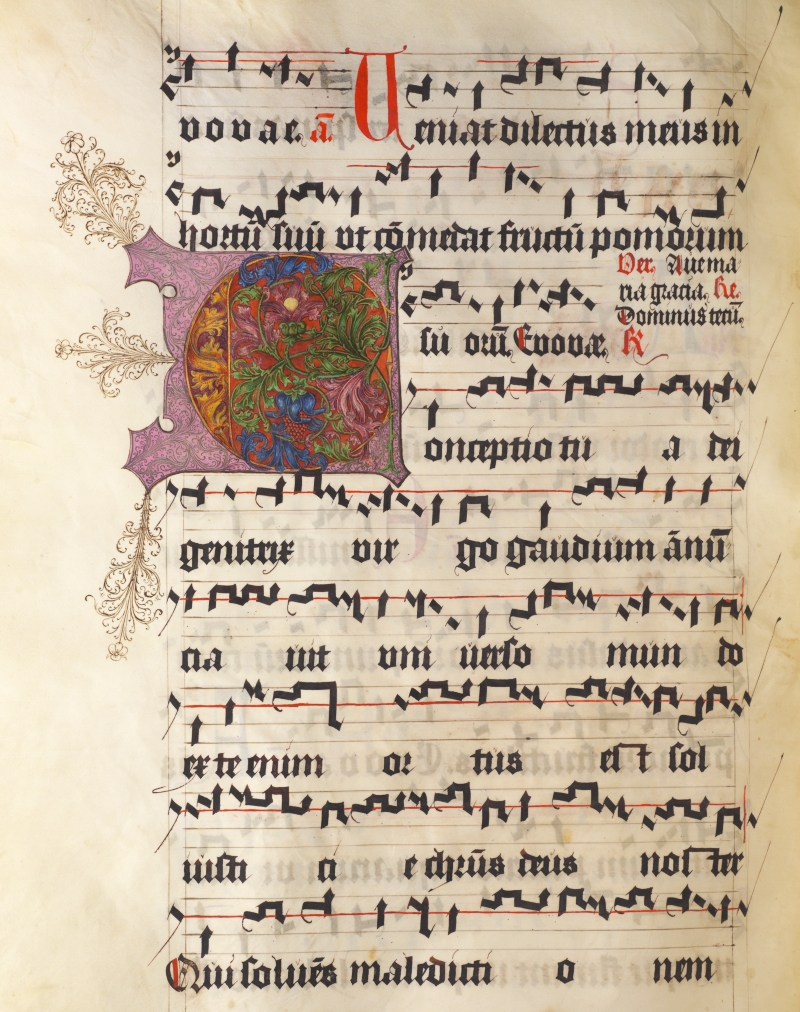 vovae. ā. Ueniat dilectus meus in
hortū suū vt cōmedat fructū pomorum
su orū, Evovæ, R
Ver. Aue ma
ria gracia. Re.
Dominus tecū.
Conceptio tu a dei
genitrix vir go gaudium ānū
cia uit vni uerso mun do
ex te enim or tus est sol
iusti ci e chrūs deus nos ter
Qui soluēs maledicti o nem